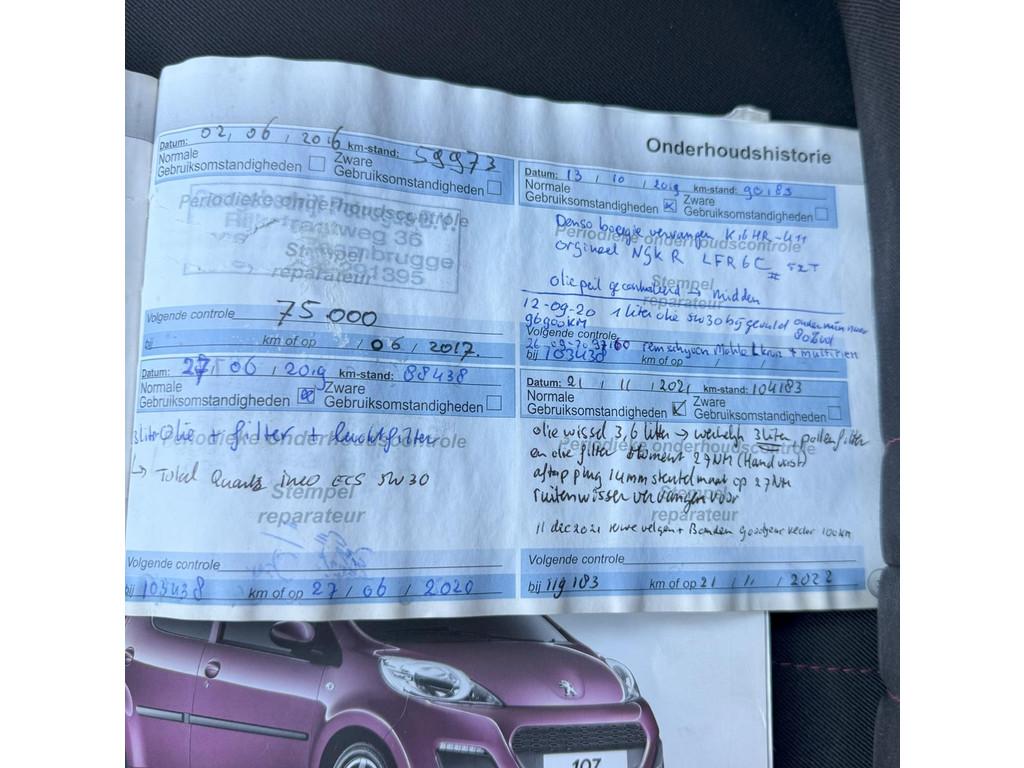 Onderhoudshistorie
Datum: 02, 06, 2016 km-stand: 59973
Normale Gebruiksomstandigheden
Zware Gebruiksomstandigheden
Periodieke onderhoudscontrole
Rijksstraatweg 36
Stempel
reparateur
Volgende controle 75000
bij km of op / 06 / 2017.
Datum: 27, 06, 2019 km-stand: 88438
Normale Gebruiksomstandigheden
Zware Gebruiksomstandigheden
Periodieke onderhoudscontrole
3 liter olie + filter + luchtfilter
↳ Total Quartz ineo ECS 5W30
Stempel
reparateur
Volgende controle
bij 103438 km of op 27 / 06 / 2020
Datum: 13 / 10 / 2019 km-stand: 90183
Normale Gebruiksomstandigheden
Zware Gebruiksomstandigheden
Denso bougie vervangen K16HR-U11
Periodieke onderhoudscontrole
orgineel NGK R LFR6C
Stempel
olie peil gecontroleerd → midden
reparateur
12-09-20 1 liter olie 5W30 bijgevuld
96900KM
Volgende controle
bij 103438 km of op / /
Datum: 21 / 11 / 2021 km-stand: 104183
Normale Gebruiksomstandigheden
Zware Gebruiksomstandigheden
olie wissel 3,6 liter → 3 liter, pollenfilter
Periodieke onderhoudscontrole
en olie filter Moment 27NM (Handvast)
aftap plug 14mm sleutel maat op 27NM
Stempel
ruitenwisser vervangen voor
reparateur
11 dec 2021 velgen + Banden Goodyear vector
Volgende controle
bij 119183 km of op 21 / 11 / 2022
107